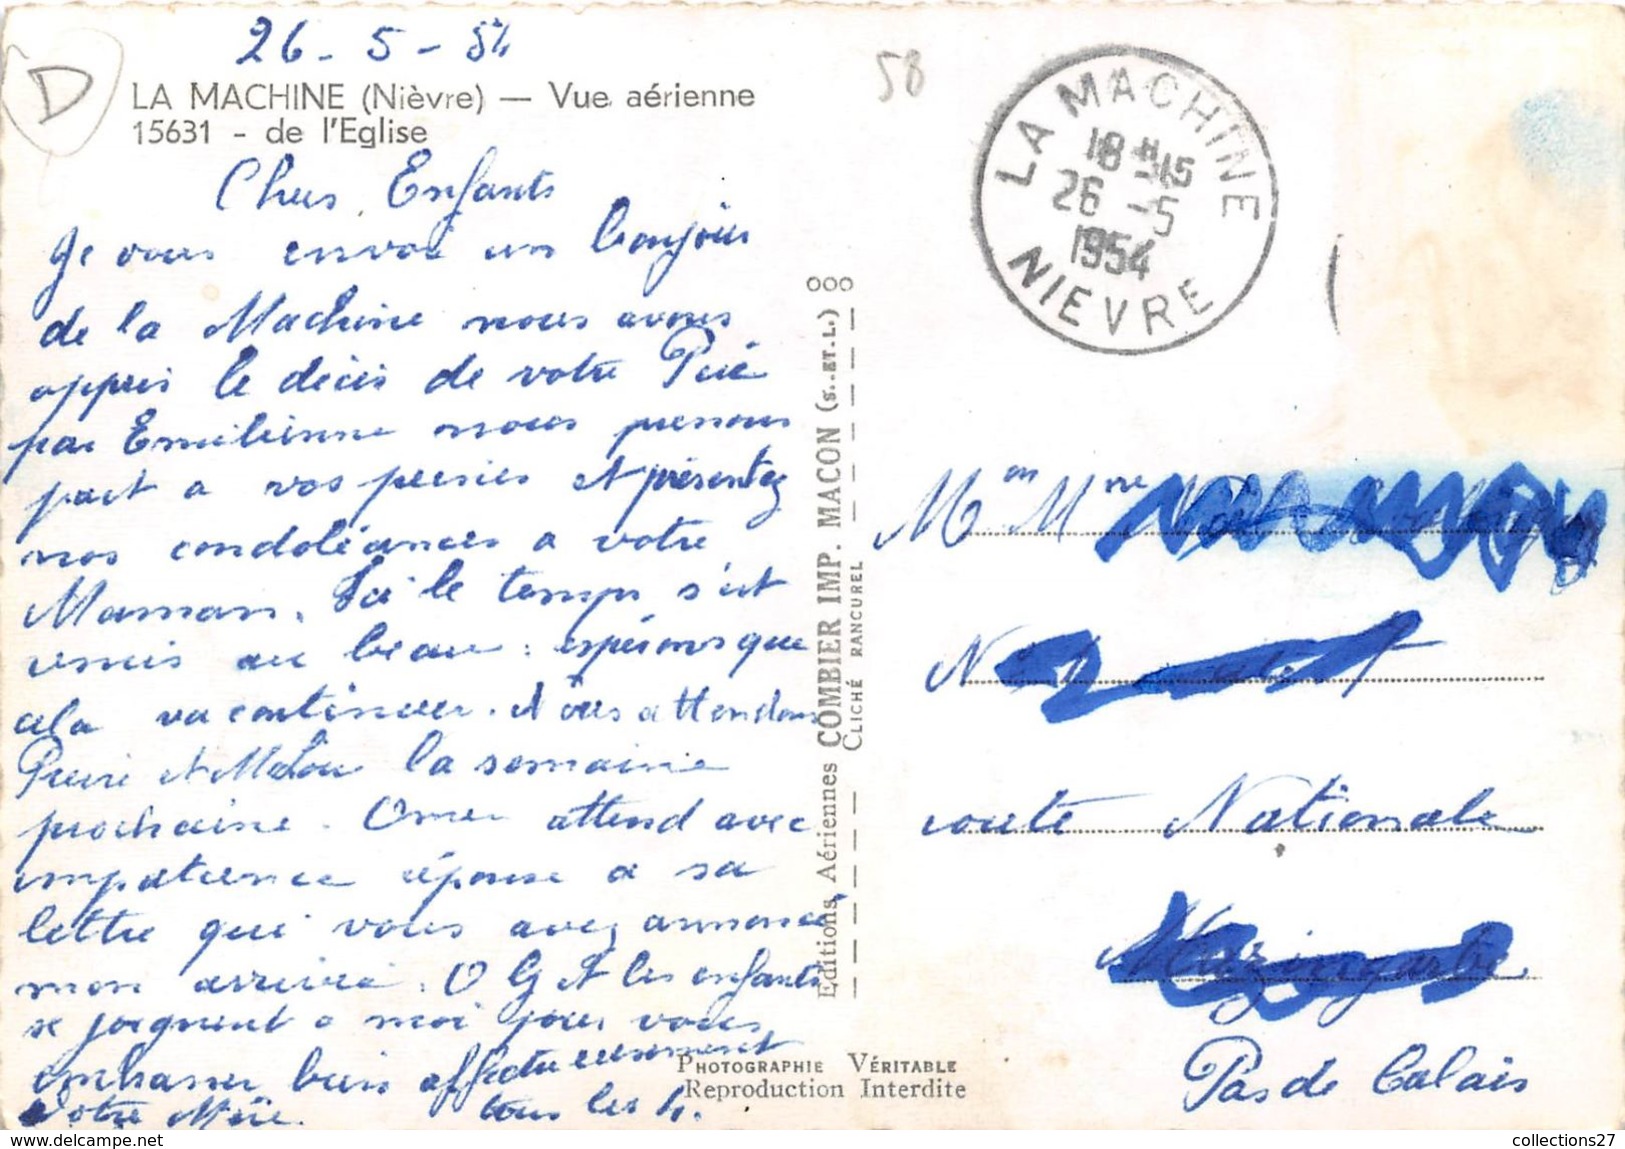 26 - 5 - 54
D
LA MACHINE (Nièvre) — Vue aérienne
15631 - de l'Eglise
58
LA MACHINE
18 H15
26 -5
1954
NIEVRE
Chers Enfants
Je vous envoi un bonjour
de la Machine nous avons
appris le décès de votre Père
par Emilienne nous prenons
part a vos peines et présentez
nos condoléances a votre
Maman. Ici le temps s'est
remis au beau : espérons que
cela va continuer. Nous attendons
Pierre et Malou la semaine
prochaine. Omer attend avec
impatience réponse a sa
lettre qui vous avez annoncé
mon arrivée. O G et les enfants
se joignent a moi pour vous
embrasser bien affectueusement
Votre Mère. tous les 4.
Editions Aériennes COMBIER IMP. MACON (S.-ET-L.) OOO
CLICHÉ RANCUREL
PHOTOGRAPHIE VÉRITABLE
Reproduction Interdite
Mon Mme
N
route Nationale
Pas de Calais
collections27